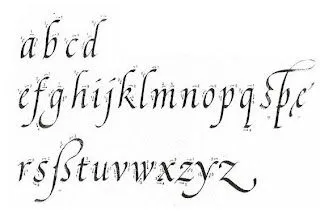 a b c d
e f g h i j k l m n o p q
r s ß s t u v w x z y z